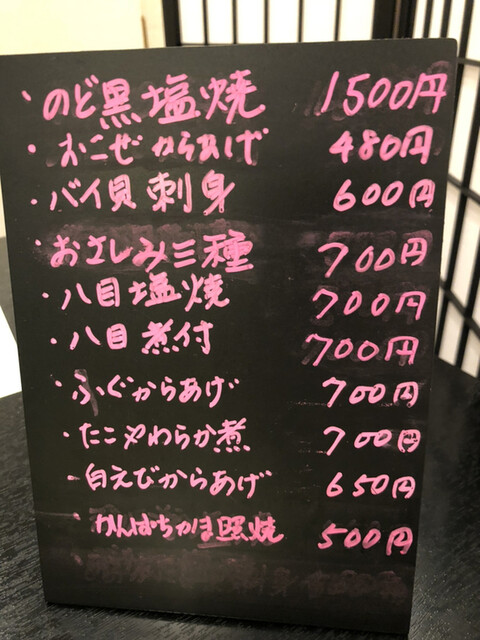 ・のど黒塩焼 1500円
・おこぜからあげ 480円
・バイ貝刺身 600円
・おさしみ三種 700円
・八目塩焼 700円
・八目煮付 700円
・ふぐからあげ 700円
・たこやわらか煮 700円
・白えびからあげ 650円
・かんぱちかま照焼 500円